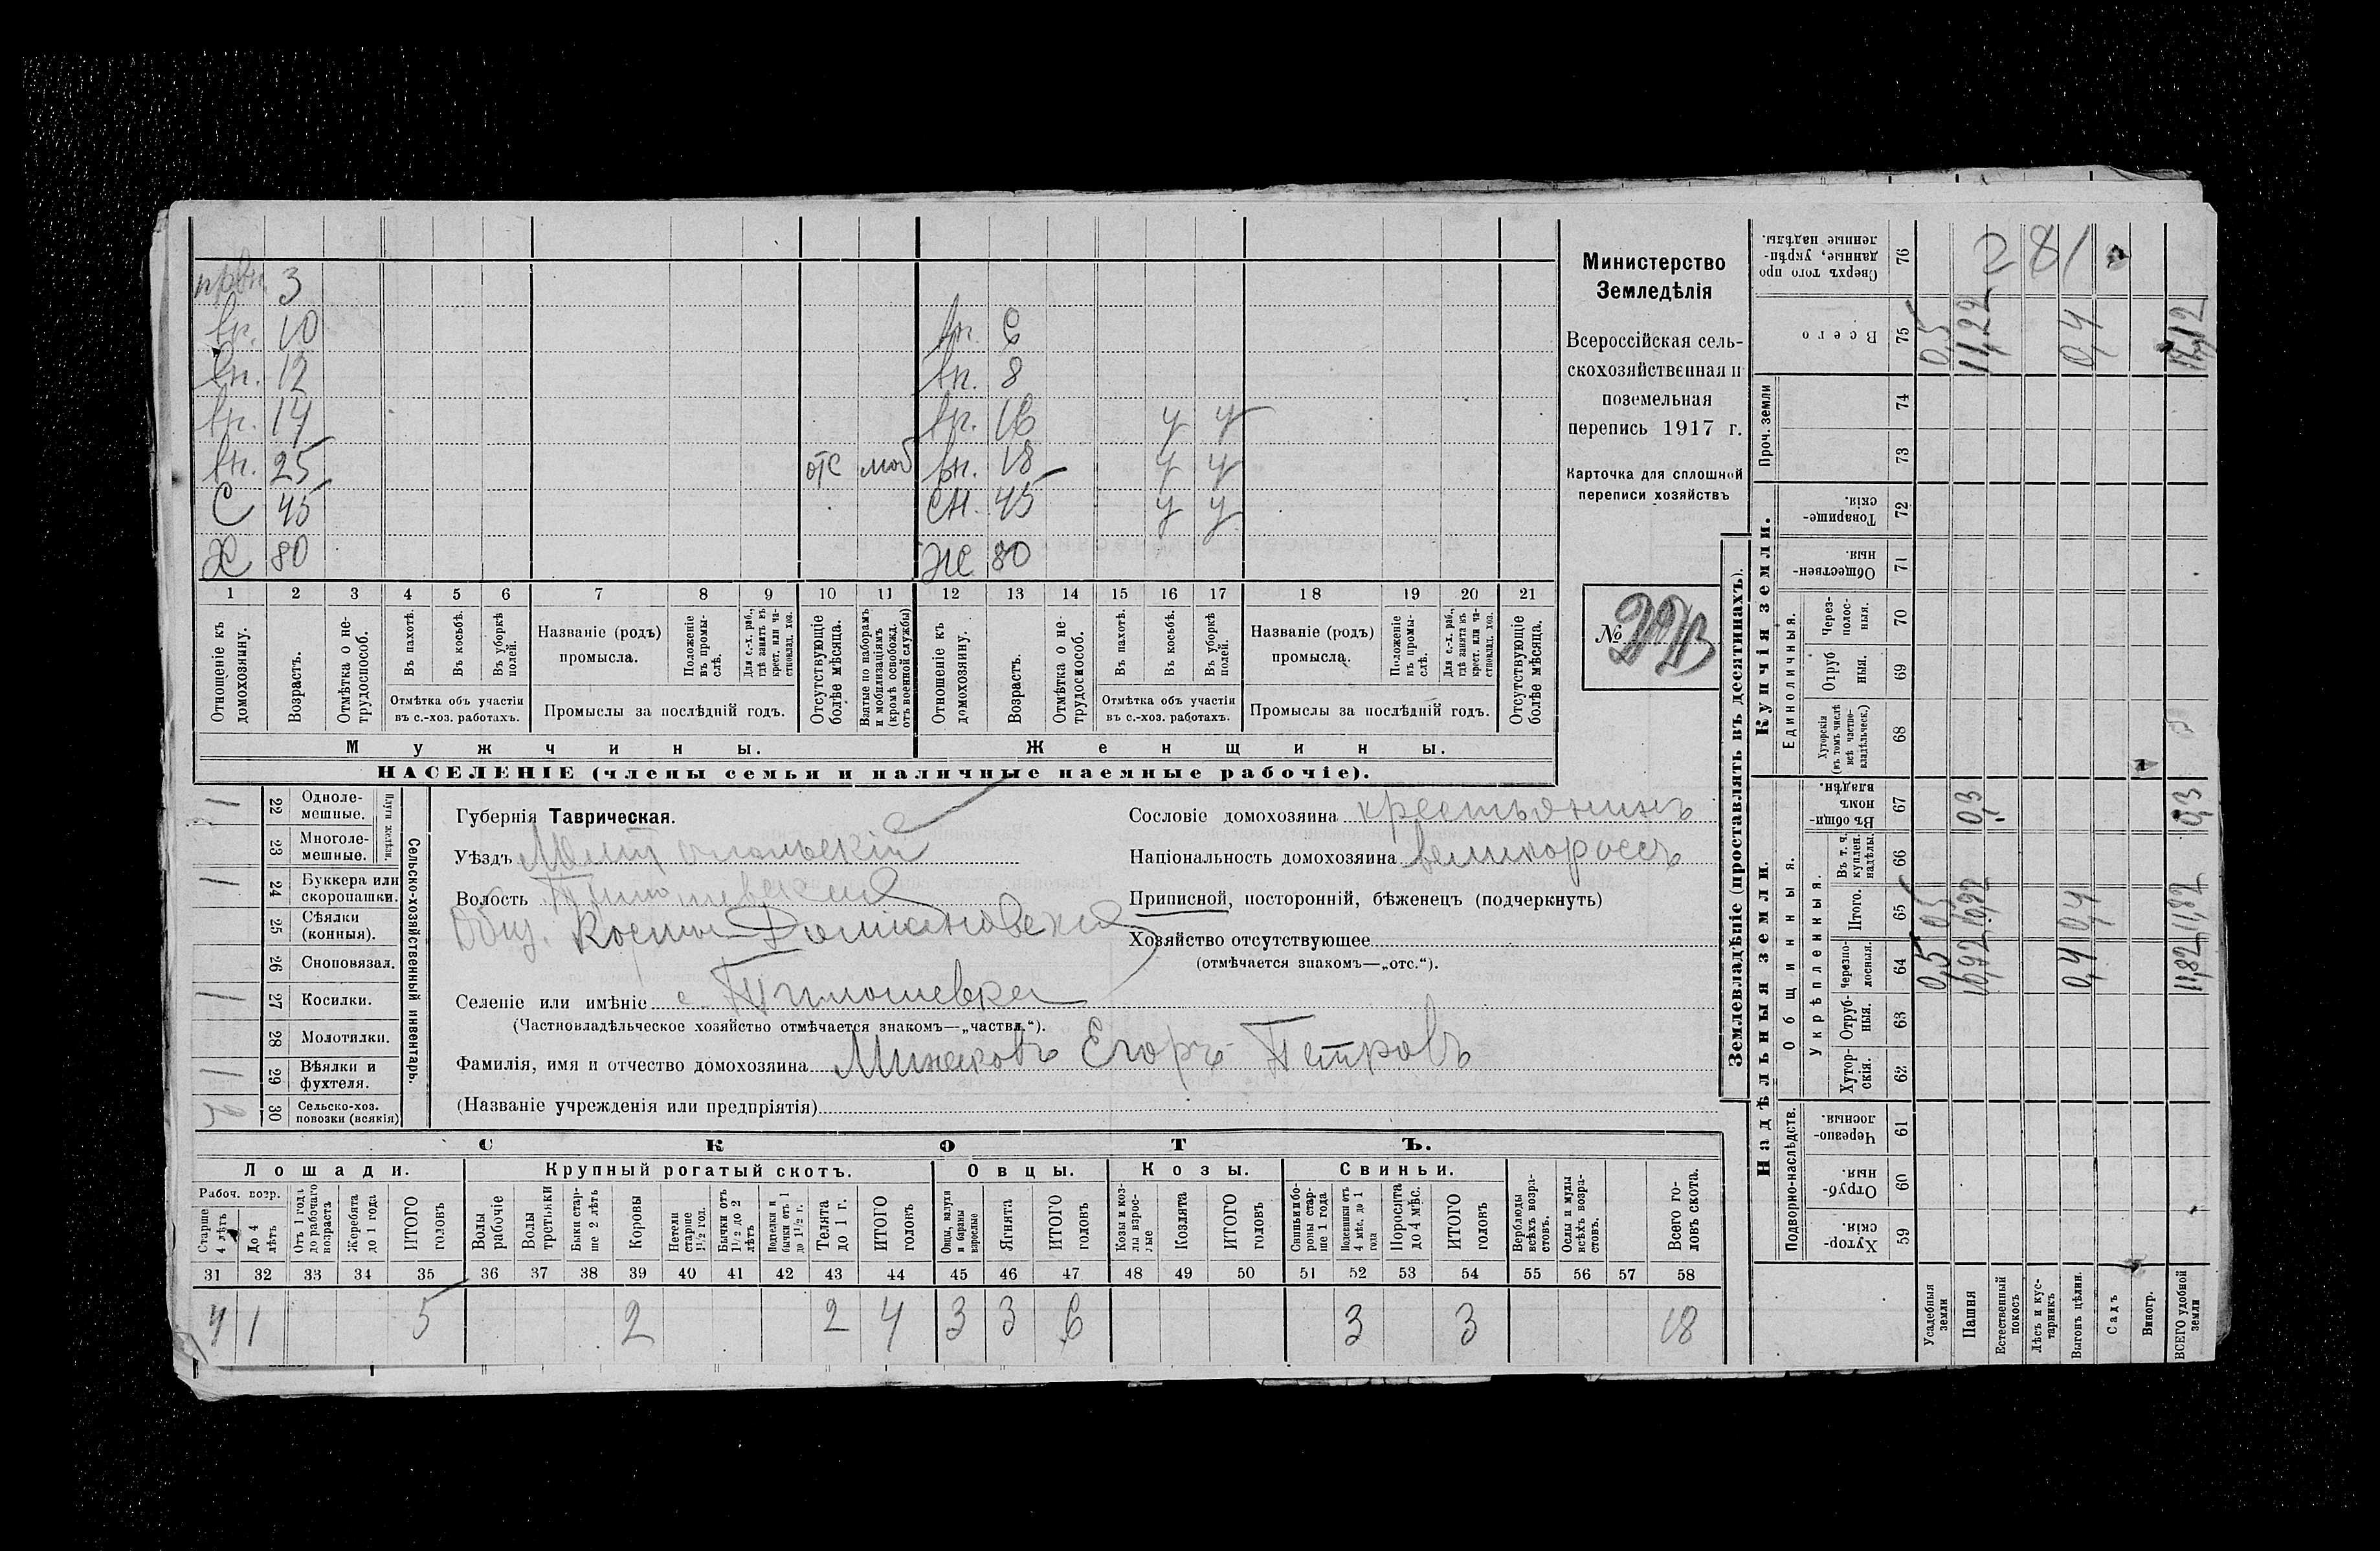 3
вн. 10 вн. 6
вн. 12 вн. 8
вн. 14 вн. 16 у у
вн. 25 отс моб вн. 18 у у
С 45 сн. 45 у у
Х 80 Ж 80
1 2 3 4 5 6 7 8 9 10 11 12 13 14 15 16 17 18 19 20 21
Отношеніе къ домохозяину.
Возрастъ.
Отмѣтка о нетрудоспособ.
Въ пахотѣ.
Въ косьбѣ.
Въ уборкѣ полей.
Отмѣтка объ участіи въ с.-хоз. работахъ.
Названіе (родъ) промысла.
Положеніе въ промыслѣ.
Для с.-х. раб., гдѣ занятъ въ крест. или частновлад. хоз.
Промыслы за послѣдній годъ.
Отсутствующіе болѣе мѣсяца.
Взятые по наборамъ и мобилизаціямъ (кромѣ освобожд. отъ военной службы)
Отношеніе къ домохозяину.
Возрастъ.
Отмѣтка о нетрудоспособ.
Въ пахотѣ.
Въ косьбѣ.
Въ уборкѣ полей.
Отмѣтка объ участіи въ с.-хоз. работахъ.
Названіе (родъ) промысла.
Положеніе въ промыслѣ.
Для с.-х. раб., гдѣ занята въ крест. или частновлад. хоз.
Промыслы за послѣдній годъ.
Отсутствующіе болѣе мѣсяца.
Мужчины. Женщины.
НАСЕЛЕНІЕ (члены семьи и наличные наемные рабочіе).
Министерство
Земледѣлія
Всероссійская сель-
скохозяйственная и
поземельная
перепись 1917 г.
Карточка для сплошной
переписи хозяйствъ
№
Сельско-хозяйственный инвентарь.
Плуги желѣзн.
1 22 Одноле-мешные.
23 Многоле-мешные.
1 24 Буккера или скоропашки.
25 Сѣялки (конныя).
26 Сноповязал.
1 27 Косилки.
28 Молотилки.
1 29 Вѣялки и фухтеля.
30 Сельско-хоз. повозки (всякія)
Губернія Таврическая.
Уѣздъ Мелитопольскій
Волость Тимошевская
Общ.
Селеніе или имѣніе с. Тимошевка
(Частновладѣльческое хозяйство отмѣчается знакомъ—„частвл.“).
Фамилія, имя и отчество домохозяина Егоръ Петровъ
(Названіе учрежденія или предпріятія)
Сословіе домохозяина крестьянинъ
Національность домохозяина великороссъ
Приписной, посторонній, бѣженецъ (подчеркнуть)
Хозяйство отсутствующее
(отмѣчается знакомъ—„отс.“).
СКОТЪ.
Лошади. Крупный рогатый скотъ. Овцы. Козы. Свиньи.
Рабоч. возр.
Старше 4 лѣтъ
До 4 лѣтъ
Отъ 1 года до рабочаго возраста
Жеребята до 1 года
ИТОГО головъ
Волы рабочіе
Волы третьяки
Быки старше 2 лѣтъ
Коровы
Нетели старше 1½ год.
Бычки отъ 1½ до 2 лѣтъ
Подтелки и бычки отъ 1 до 1½ г.
Телята до 1 г.
ИТОГО головъ
Овцы, валухи и бараны взрослые
Ягнята
ИТОГО головъ
Козы и козлы взрослые
Козлята
ИТОГО головъ
Свиньи и боровы старше 1 года
Подсвинки отъ 4 мѣс. до 1 года
Поросята до 4 мѣс.
ИТОГО головъ
Верблюды всѣхъ возрастовъ.
Ослы и мулы всѣхъ возрастовъ.
Всего головъ скота.
31 32 33 34 35 36 37 38 39 40 41 42 43 44 45 46 47 48 49 50 51 52 53 54 55 56 57 58
4 1 5 2 2 4 3 3 6 3 3 18
Землевладѣніе (проставлять въ десятинахъ).
Надѣльныя земли. Купчія земли. Проч. земли
Подворно-наслѣдств. Общинныя. Укрѣпленныя. Единоличныя.
Хуторскія. 59
Отрубныя. 60
Черезполосныя. 61
Хуторскія. 62
Отрубныя. 63
Черезполосныя. 64
Итого. 65
Въ т. ч. куплен. надѣлы. 66
Въ общинномъ владѣн. 67
Хуторскія (въ томъ числѣ всѣ частновладѣльческ.) 68
Отрубныя. 69
Черезполосныя. 70
Общественныя. 71
Товарищескія. 72
73
74
Всего 75
Сверхъ того проданные, укрѣпленные надѣлы. 76
Усадебныя земли 0,5 0,5 0,5
Пашня 10,92 10,92 0,3 11,22
Естественный покосъ
Лѣсъ и кустарникъ
Выгонъ цѣлин. 0,4 0,4 0,4
Садъ
Виногр.
ВСЕГО удобной земли 11,82 11,82 0,3 12,12
281